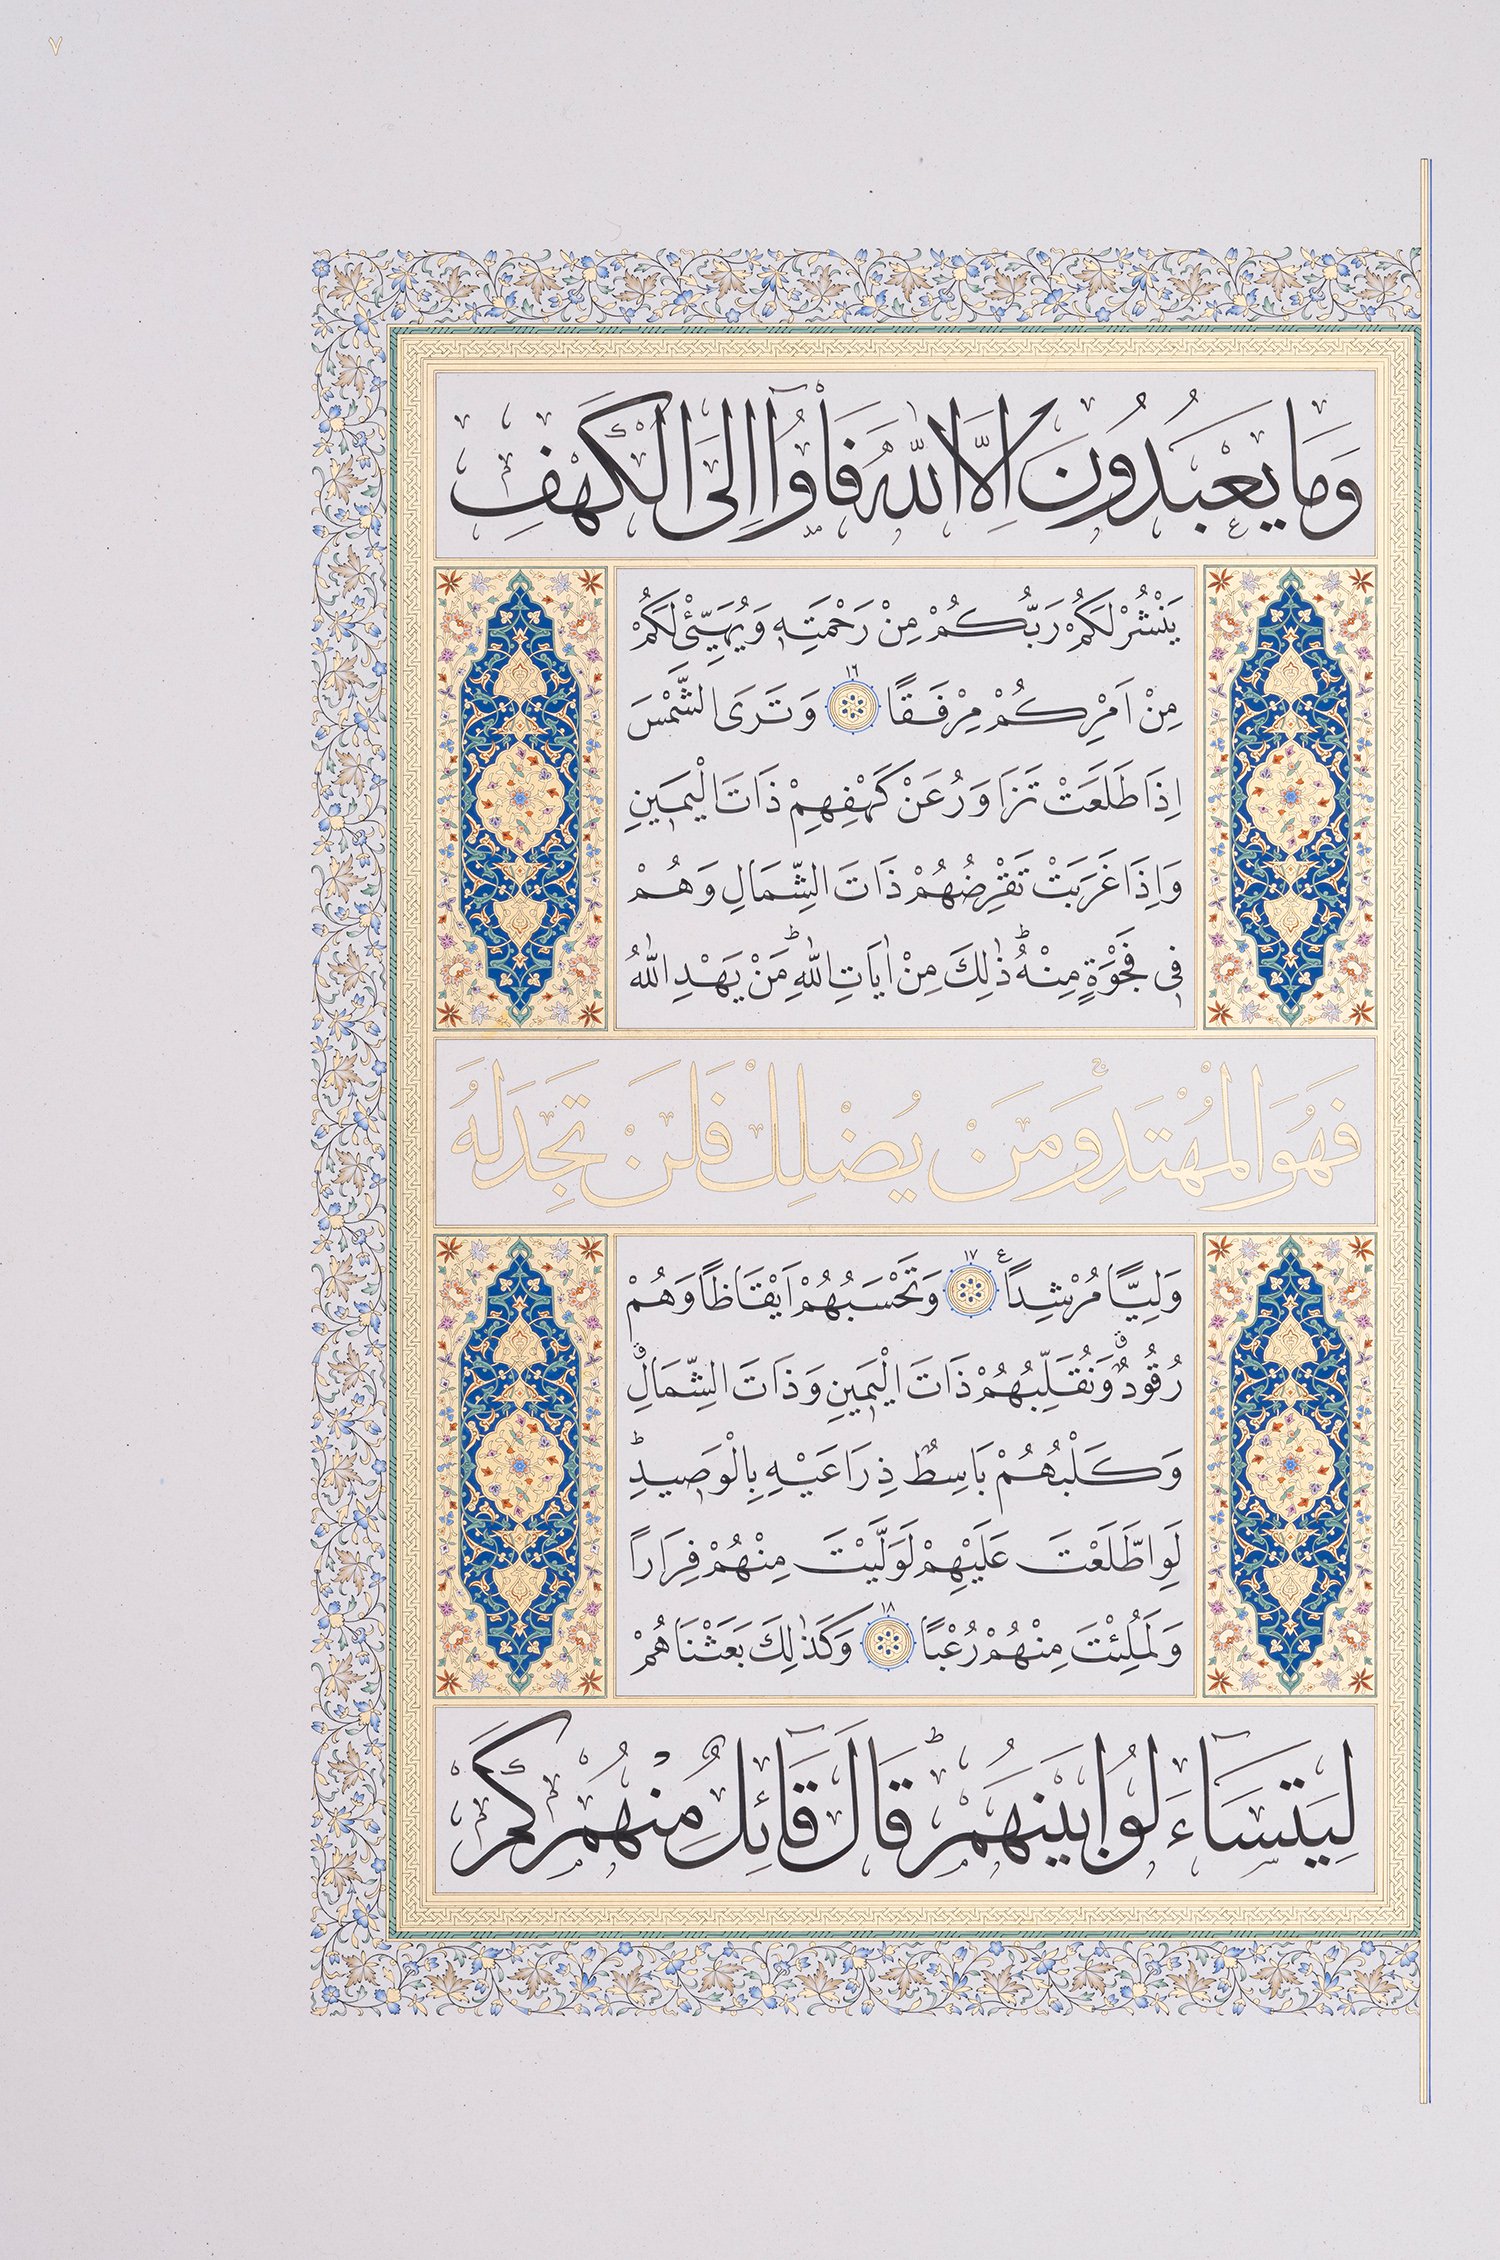 ٧
وَمَا يَعْبُدُونَ اِلَّا اللّٰهَ فَأْوُٓا اِلَى الْكَهْفِ
يَنْشُرْ لَكُمْ رَبُّكُمْ مِنْ رَحْمَتِهٖ وَيُهَيِّئْ لَكُمْ
مِنْ اَمْرِكُمْ مِرْفَقًا ١٦ وَتَرَى الشَّمْسَ
اِذَا طَلَعَتْ تَزَاوَرُ عَنْ كَهْفِهِمْ ذَاتَ الْيَمٖينِ
وَاِذَا غَرَبَتْ تَقْرِضُهُمْ ذَاتَ الشِّمَالِ وَهُمْ
فٖى فَجْوَةٍ مِنْهُ ؕ ذٰلِكَ مِنْ اٰيَاتِ اللّٰهِ ؕ مَنْ يَهْدِ اللّٰهُ
فَهُوَ الْمُهْتَدِ ۚ وَمَنْ يُضْلِلْ فَلَنْ تَجِدَ لَهُ
وَلِيًّا مُرْشِدًا ع ١٧ وَتَحْسَبُهُمْ اَيْقَاظًا وَهُمْ
رُقُودٌ ۗ وَنُقَلِّبُهُمْ ذَاتَ الْيَمٖينِ وَذَاتَ الشِّمَالِ ۗ
وَكَلْبُهُمْ بَاسِطٌ ذِرَاعَيْهِ بِالْوَصٖيدِ ؕ
لَوِ اطَّلَعْتَ عَلَيْهِمْ لَوَلَّيْتَ مِنْهُمْ فِرَارًا
وَلَمُلِئْتَ مِنْهُمْ رُعْبًا ١٨ وَكَذٰلِكَ بَعَثْنَاهُمْ
لِيَتَسَٓاءَلُوا بَيْنَهُمْ ؕ قَالَ قَٓائِلٌ مِنْهُمْ كَمْ